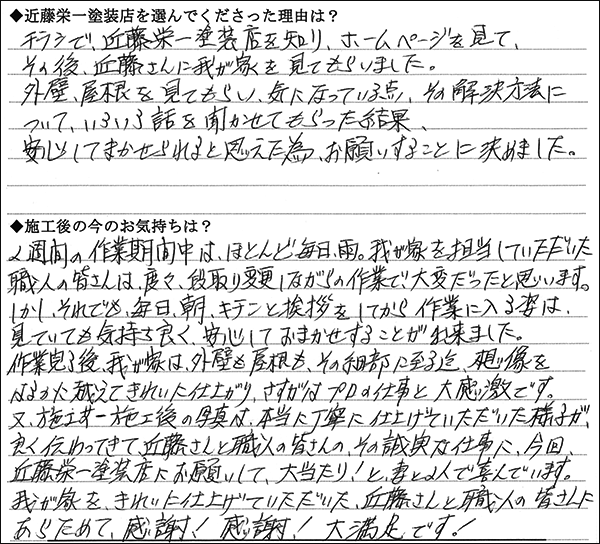 ◆近藤栄一塗装店を選んでくださった理由は？
チラシで、近藤栄一塗装店を知り、ホームページを見て、
その後、近藤さんに我が家を見てもらいました。
外壁、屋根を見てもらい、気になっている点、その解決方法に
ついて、いろいろ話を聞かせてもらった結果、
安心してまかせられると思えた為、お願いすることに決めました。
◆施工後の今のお気持ちは？
2週間の作業期間中は、ほとんど毎日、雨。我が家を担当していただいた
職人の皆さんは、度々、段取り変更しながらの作業で大変だったと思います。
しかし、それでも、毎日、朝、キチンと挨拶をしてから作業に入る姿は、
見ていても気持ち良く、安心しておまかせすることが出来ました。
作業完了後、我が家は、外壁も屋根も、その細部に至る迄、想像を
はるかに越えてきれいに仕上がり、さすがはプロの仕事と大感激です。
又、施工前〜施工後の写真は、本当に丁寧に仕上げていただいた様子が、
良く伝わってきて、近藤さんと職人の皆さんの、その誠実な仕事に、今回
近藤栄一塗装店にお願いして、大当たり！と、妻と2人で喜んでいます。
我が家を、きれいに仕上げていただいた、近藤さんと職人の皆さんに
あらためて、感謝！感謝！大満足です！